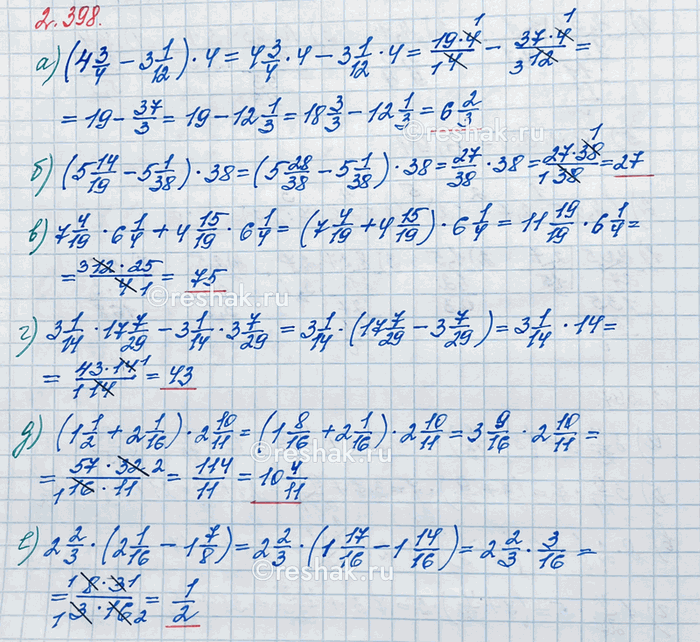 2.398.
а) (4 3/4 − 3 1/12) · 4 = 4 3/4 · 4 − 3 1/12 · 4 = 19·4/4 − 37·4/12 =
= 19 − 37/3 = 19 − 12 1/3 = 18 3/3 − 12 1/3 = 6 2/3
б) (5 14/19 − 5 1/38) · 38 = (5 28/38 − 5 1/38) · 38 = 27/38 · 38 = 27·38/38 = 27
в) 7 4/19 · 6 1/4 + 4 15/19 · 6 1/4 = (7 4/19 + 4 15/19) · 6 1/4 = 11 19/19 · 6 1/4 =
= 12·25/4 = 75
г) 3 1/14 · 17 7/29 − 3 1/14 · 3 7/29 = 3 1/14 · (17 7/29 − 3 7/29) = 3 1/14 · 14 =
= 43·14/14 = 43
д) (1 1/2 + 2 1/16) · 2 10/11 = (1 8/16 + 2 1/16) · 2 10/11 = 3 9/16 · 2 10/11 =
= 57·32/16·11 = 114/11 = 10 4/11
е) 2 2/3 · (2 1/16 − 1 7/8) = 2 2/3 · (1 17/16 − 1 14/16) = 2 2/3 · 3/16 =
= 8·3/3·16 = 1/2
©reshak.ru